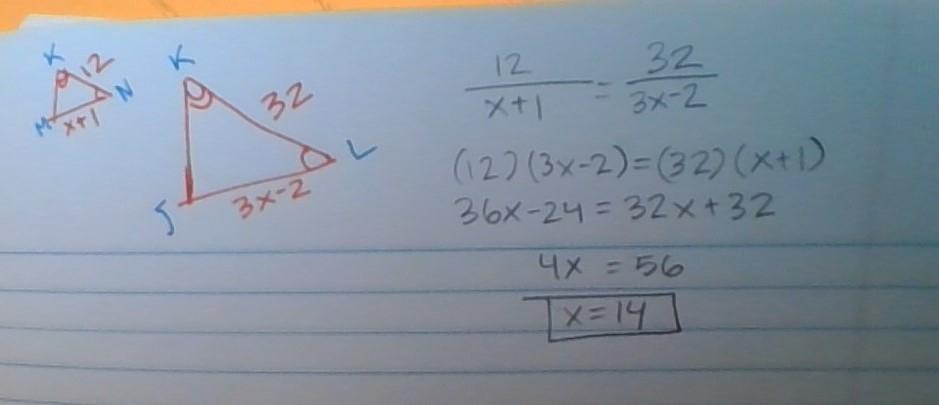 K 12 N
M x+1
K 32 L
J 3x-2
12/(x+1) = 32/(3x-2)
(12)(3x-2)=(32)(x+1)
36x-24=32x+32
4x = 56
x=14